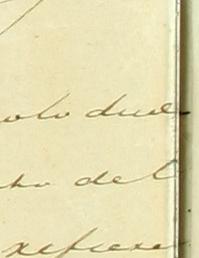 olo due
to del
refiere